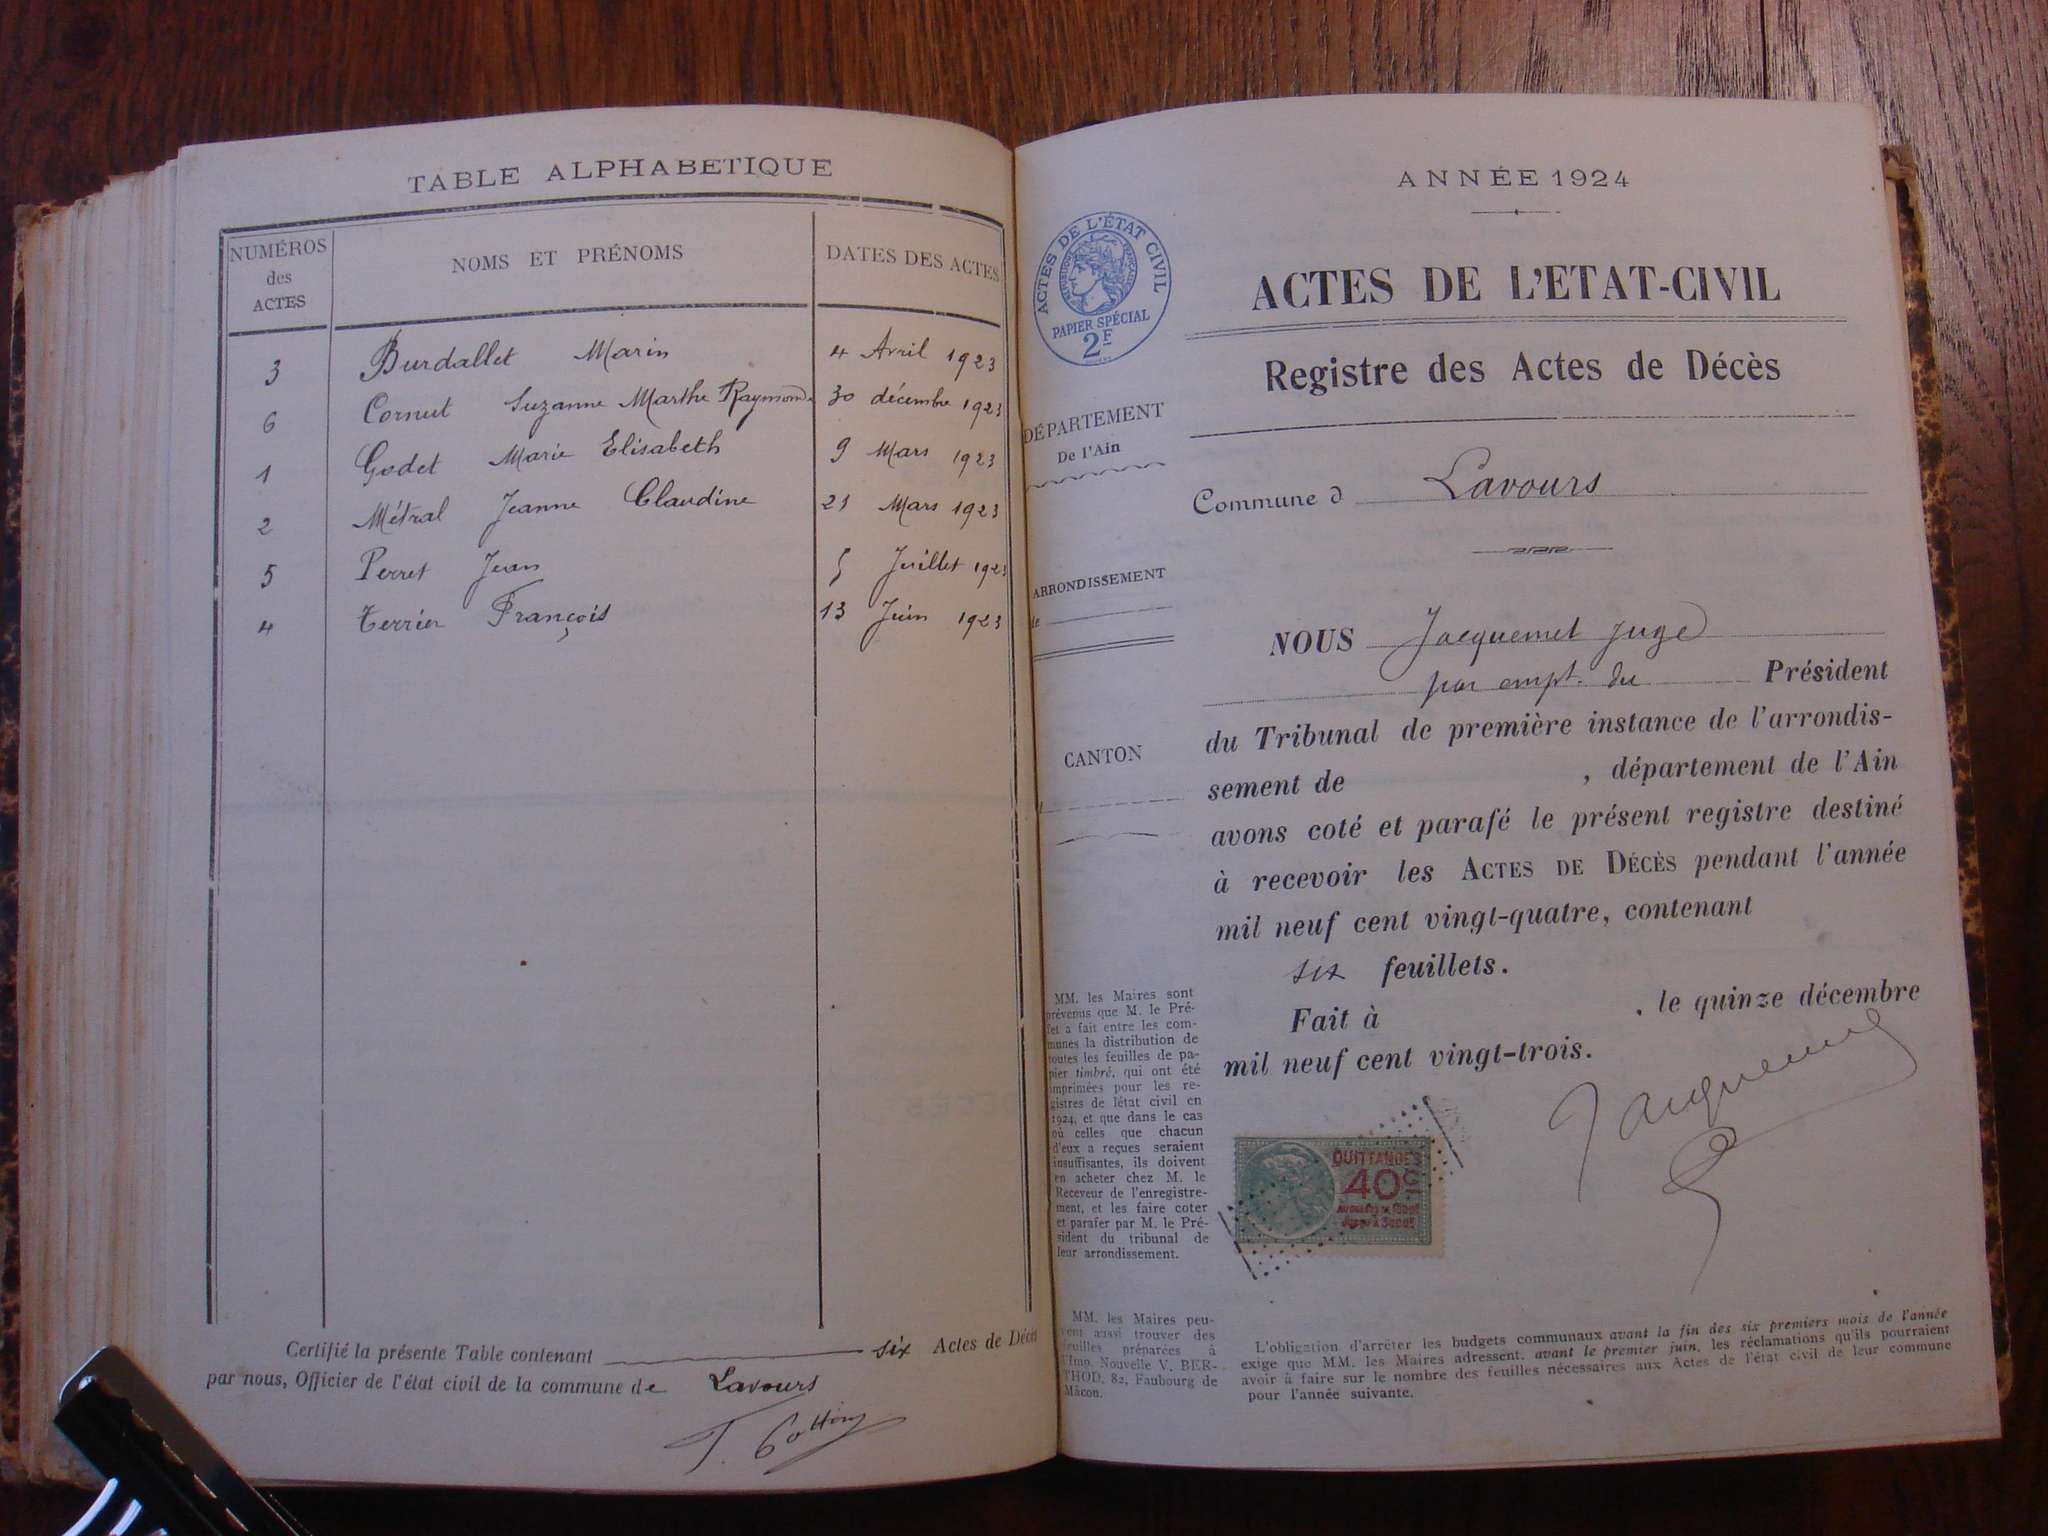 TABLE ALPHABETIQUE
NUMÉROS
des
ACTES
NOMS ET PRÉNOMS
DATES DES ACTES
3 Burdallet Marin 4 Avril 1923
6 Cornut Suzanne Marthe Raymonde 30 décembre 1923
1 Godet Marie Elisabeth 9 Mars 1923
2 Métral Jeanne Claudine 21 Mars 1923
5 Perret Jean 5 Juillet 1923
4 Terrier François 13 Juin 1923
Certifié la présente Table contenant six Actes de Décès
par nous, Officier de l'état civil de la commune de Lavours
ANNÉE 1924
ACTES DE L'ÉTAT CIVIL
RÉPUBLIQUE FRANÇAISE
PAPIER SPÉCIAL
2F
ACTES DE L'ETAT-CIVIL
Registre des Actes de Décès
DÉPARTEMENT
De l'Ain
Commune d Lavours
ARRONDISSEMENT
de
CANTON
NOUS Jacquemet juge
par empt. du Président
du Tribunal de première instance de l'arrondis-
sement de , département de l'Ain
avons coté et parafé le présent registre destiné
à recevoir les ACTES DE DÉCÈS pendant l'année
mil neuf cent vingt-quatre, contenant
six feuillets.
Fait à , le quinze décembre
mil neuf cent vingt-trois.
Jacquemet
MM. les Maires sont
prévenus que M. le Pré-
fet a fait entre les com-
munes la distribution de
toutes les feuilles de pa-
pier timbré, qui ont été
imprimées pour les re-
gistres de l'état civil en
1924, et que dans le cas
où celles que chacun
d'eux a reçues seraient
insuffisantes, ils doivent
en acheter chez M. le
Receveur de l'enregistre-
ment, et les faire coter
et parafer par M. le Pré-
sident du tribunal de
leur arrondissement.
QUITTANCES
40c
MM. les Maires peu-
vent aussi trouver des
feuilles préparées à
l'Imp. Nouvelle V. BER-
THOD, 82, Faubourg de
Mâcon.
L'obligation d'arrêter les budgets communaux avant la fin des six premiers mois de l'année
exige que MM. les Maires adressent, avant le premier juin, les réclamations qu'ils pourraient
avoir à faire sur le nombre des feuilles nécessaires aux Actes de l'état civil de leur commune
pour l'année suivante.